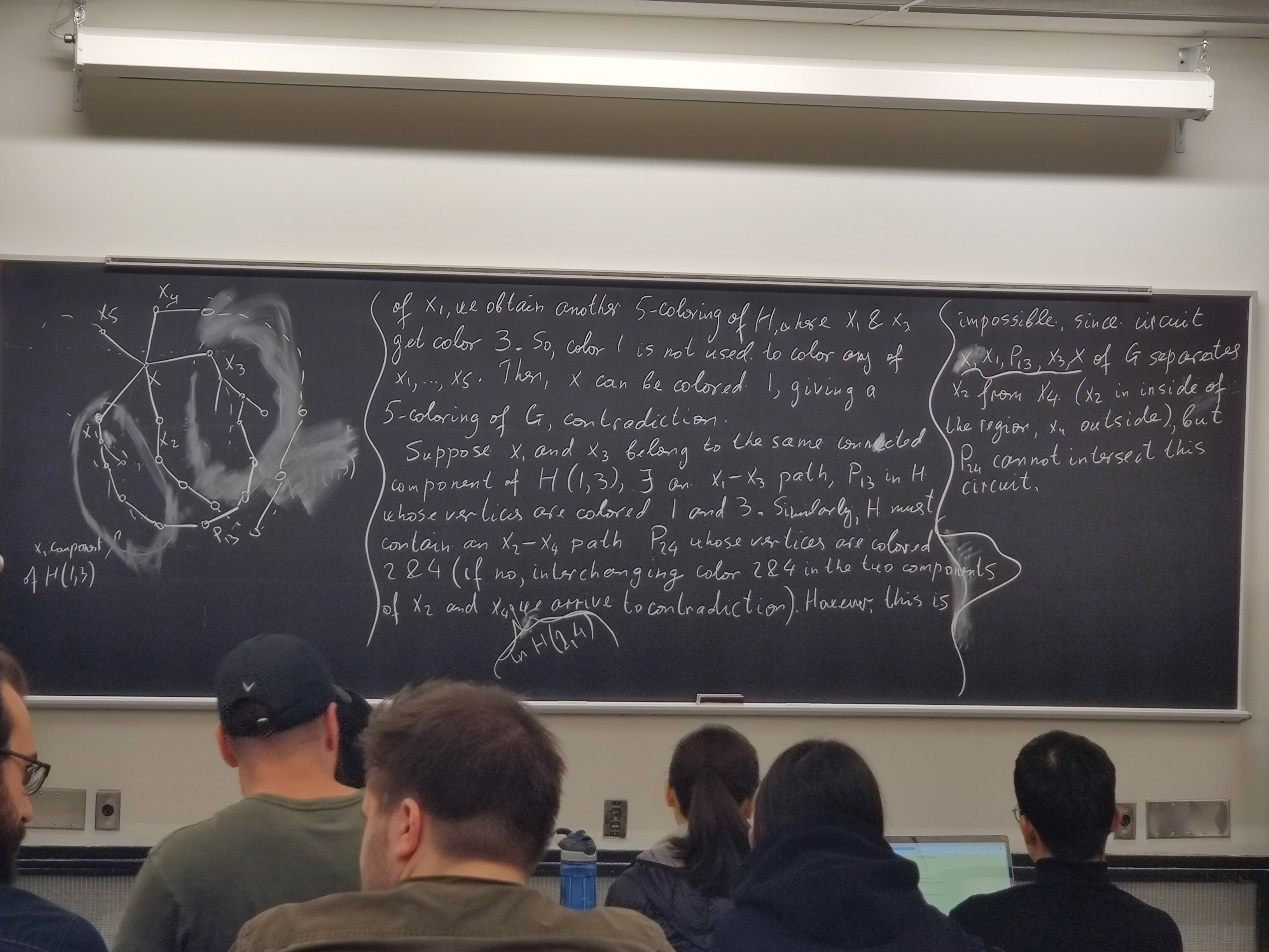 X5
X4
X
X3
X1
X2
P13
X1 component
of H(1,3)
of X1, we obtain another 5-coloring of H, where X1 & X3
get color 3. So, color 1 is not used to color any of
X1, ..., X5. Then, X can be colored 1, giving a
5-coloring of G, contradiction.
Suppose X1 and X3 belong to the same connected
component of H(1,3), ∃ an X1-X3 path, P13 in H
whose vertices are colored 1 and 3. Similarly, H must
contain an X2-X4 path P24 whose vertices are colored
2 & 4 (if no, interchanging color 2&4 in the two components
of X2 and X4, we arrive to contradiction). However, this is
in H(2,4)
impossible, since circuit
X, X1, P13, X3, X of G separates
X2 from X4. (X2 in inside of
the region, X4 outside), but
P24 cannot intersect this
circuit.